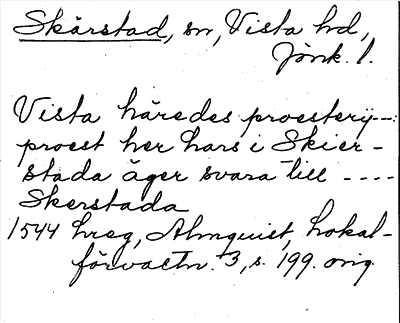 Skärstad, sn, Vista hd,
Jönk. l.
Vista häredes proestery---:
proest her hans i Skier-
stada äger svara till ----
Skerstada
1544 hreg, Almquist, Lokal-
förvaltn. 3, s. 199. orig.